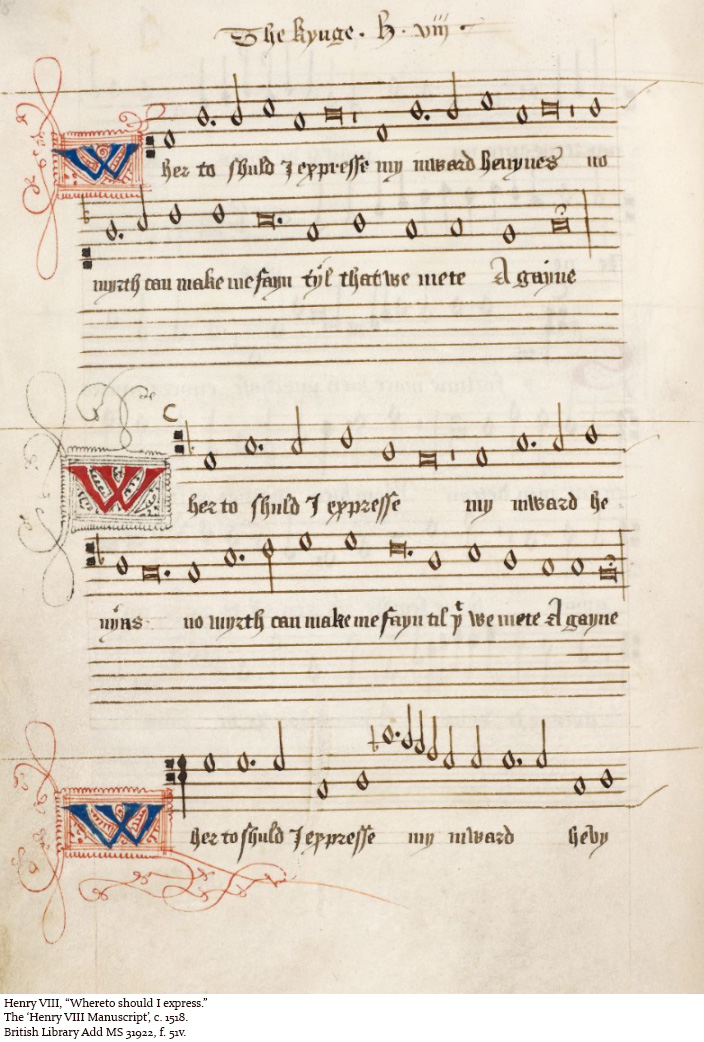 The kynge . h . viii .
Wher to shuld I expresse my inward hevynes no
myrth can make me fayn tyl that we mete A gayne
C
Wher to shuld I expresse my inward he
vyns no myrth can make me fayn til yt we mete A gayne
Wher to shuld I expresse my inward hevy
Henry VIII, “Whereto should I express.”
The ‘Henry VIII Manuscript’, c. 1518.
British Library Add MS 31922, f. 51v.